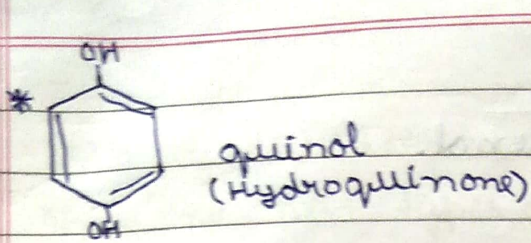 OH
*
quinol
(Hydroquinone)
OH